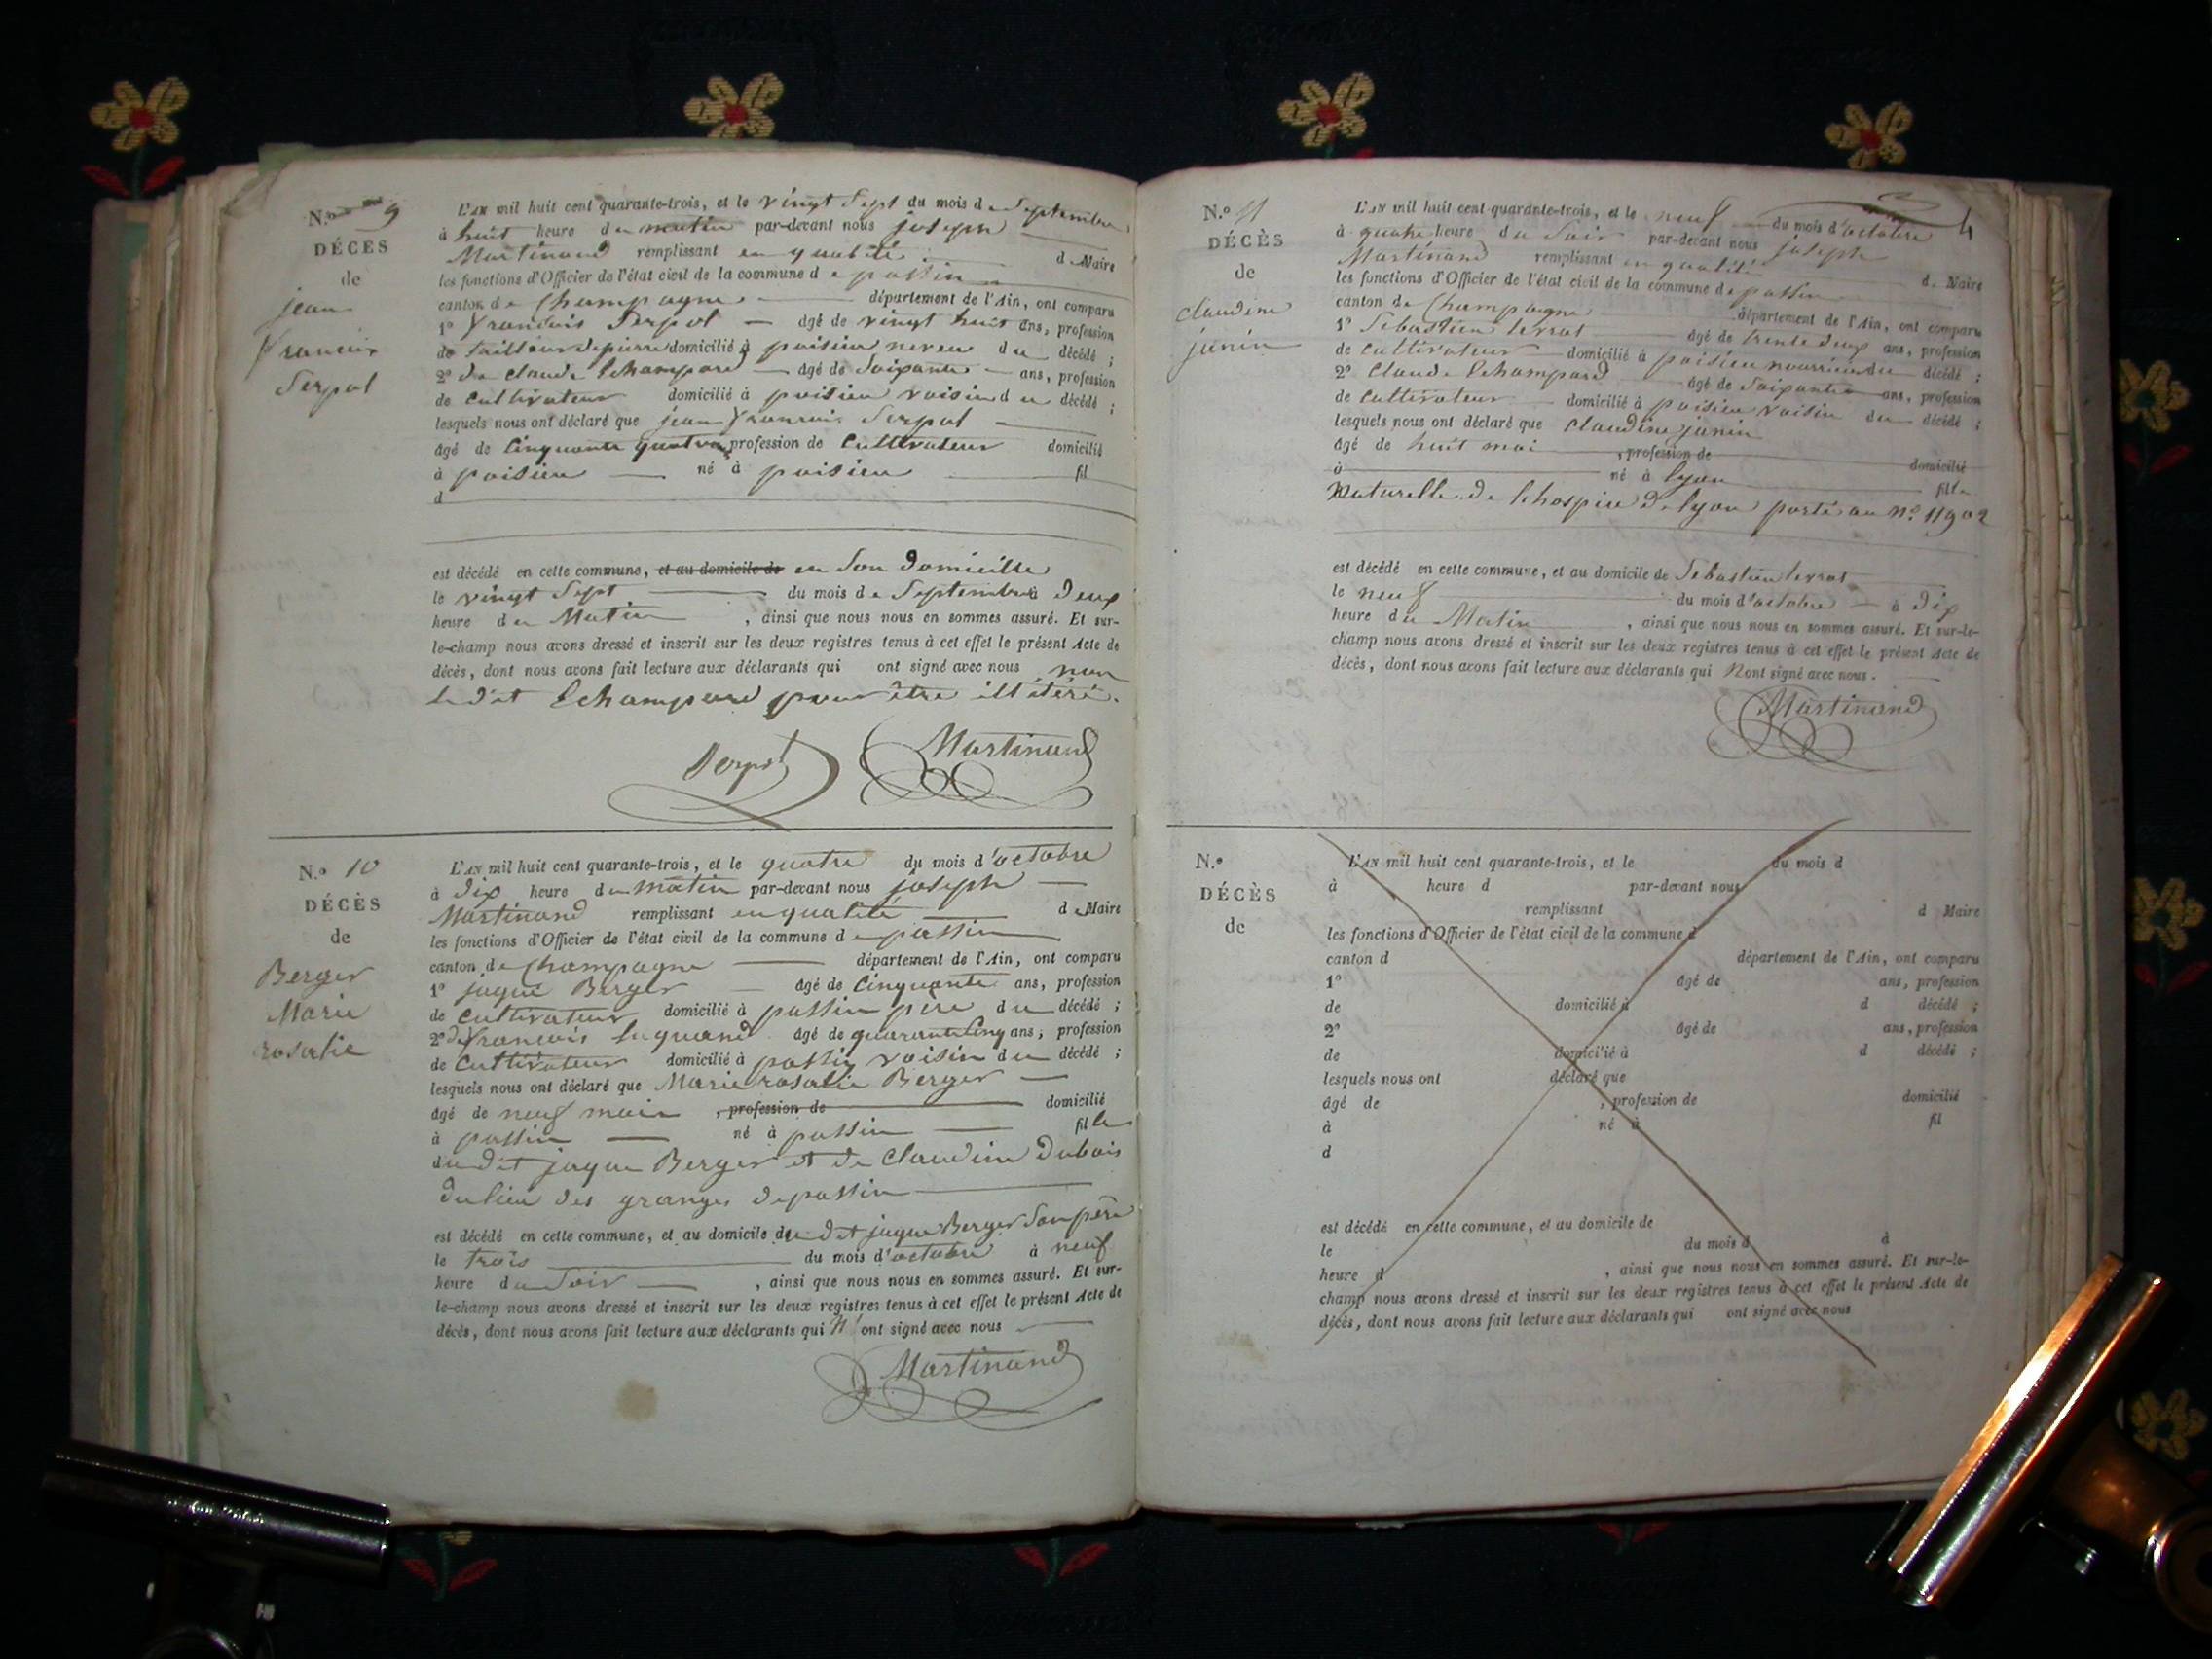 N.º 9
DÉCÈS
de
jean
francois
Serpol
L'AN mil huit cent quarante-trois, et le vingt Sept du mois de Septembre
à huit heure du matin par-devant nous joseph
Martinand remplissant en qualité de Maire
les fonctions d'Officier de l'état civil de la commune de passin
canton de Champagne département de l'Ain, ont comparu
1º francois Serpol âgé de vingt huit ans, profession
de tailleur de pierre domicilié à poisieu neveu du décédé ;
2º de claude Echampard âgé de Soixante ans, profession
de Cultivateur domicilié à poisieu voisin du décédé ;
lesquels nous ont déclaré que jean francois Serpol
âgé de Cinquante quatre profession de Cultivateur domicilié
à poisieu né à poisieu fil
d
est décédé en cette commune, et au domicile de en Son Domicille
le vingt Sept du mois de Septembre à Deux
heure du Matin , ainsi que nous nous en sommes assuré. Et sur-
le-champ nous avons dressé et inscrit sur les deux registres tenus à cet effet le présent Acte de
décès, dont nous avons fait lecture aux déclarants qui ont signé avec nous non
le dit Echampard pour être illétéré.
Serpol Martinand
N.º 10
DÉCÈS
de
Berger
Marie
rosalie
L'AN mil huit cent quarante-trois, et le quatre du mois d'octobre
à dix heure du matin par-devant nous joseph
Martinand remplissant en qualité de Maire
les fonctions d'Officier de l'état civil de la commune de passin
canton de Champagne département de l'Ain, ont comparu
1º jaque Berger âgé de Cinquante ans, profession
de Cultivateur domicilié à passin père du décédé ;
2º de francois âgé de quarante Cinq ans, profession
de Cultivateur domicilié à passin voisin du décédé ;
lesquels nous ont déclaré que Marie rosalie Berger
âgé de neuf mois , profession de domicilié
à passin né à passin fille
du dit jaque Berger et de Claudine Dubois
du lieu des granges de passin
est décédé en cette commune, et au domicile du dit jaque Berger Son père
le trois du mois d'octobre à neuf
heure du Soir , ainsi que nous nous en sommes assuré. Et sur-
le-champ nous avons dressé et inscrit sur les deux registres tenus à cet effet le présent Acte de
décès, dont nous avons fait lecture aux déclarants qui N'ont signé avec nous
Martinand
N.º 11
DÉCÈS
de
claudine
janin
4
L'AN mil huit cent quarante-trois, et le neuf du mois d'octobre
à quatre heure du Soir par-devant nous joseph
Martinand remplissant en qualité de Maire
les fonctions d'Officier de l'état civil de la commune de passin
canton de Champagne département de l'Ain, ont comparu
1º Sébastien terrat âgé de trente deux ans, profession
de Cultivateur domicilié à poisieu nourricier du décédé ;
2º Claude Echampard âgé de Soixante ans, profession
de Cultivateur domicilié à poisieu voisin du décédé ;
lesquels nous ont déclaré que Claudine janin
âgé de huit moi , profession de domicilié
à né à lyon fille
Naturelle de lhospice de lyon porté au nº 11902
est décédé en cette commune, et au domicile de Sébastien terrat
le neuf du mois d'octobre à dix
heure du Matin , ainsi que nous nous en sommes assuré. Et sur-le-
champ nous avons dressé et inscrit sur les deux registres tenus à cet effet le présent Acte de
décès, dont nous avons fait lecture aux déclarants qui Nont signé avec nous.
Martinand
N.º
DÉCÈS
de
L'AN mil huit cent quarante-trois, et le du mois d
à heure d par-devant nous
remplissant d Maire
les fonctions d'Officier de l'état civil de la commune d
canton d département de l'Ain, ont comparu
1º âgé de ans, profession
de domicilié à d décédé ;
2º âgé de ans, profession
de domicilié à d décédé ;
lesquels nous ont déclaré que
âgé de , profession de domicilié
à né à fil
d
est décédé en cette commune, et au domicile de
le du mois d à
heure d , ainsi que nous nous en sommes assuré. Et sur-le-
champ nous avons dressé et inscrit sur les deux registres tenus à cet effet le présent Acte de
décès, dont nous avons fait lecture aux déclarants qui ont signé avec nous